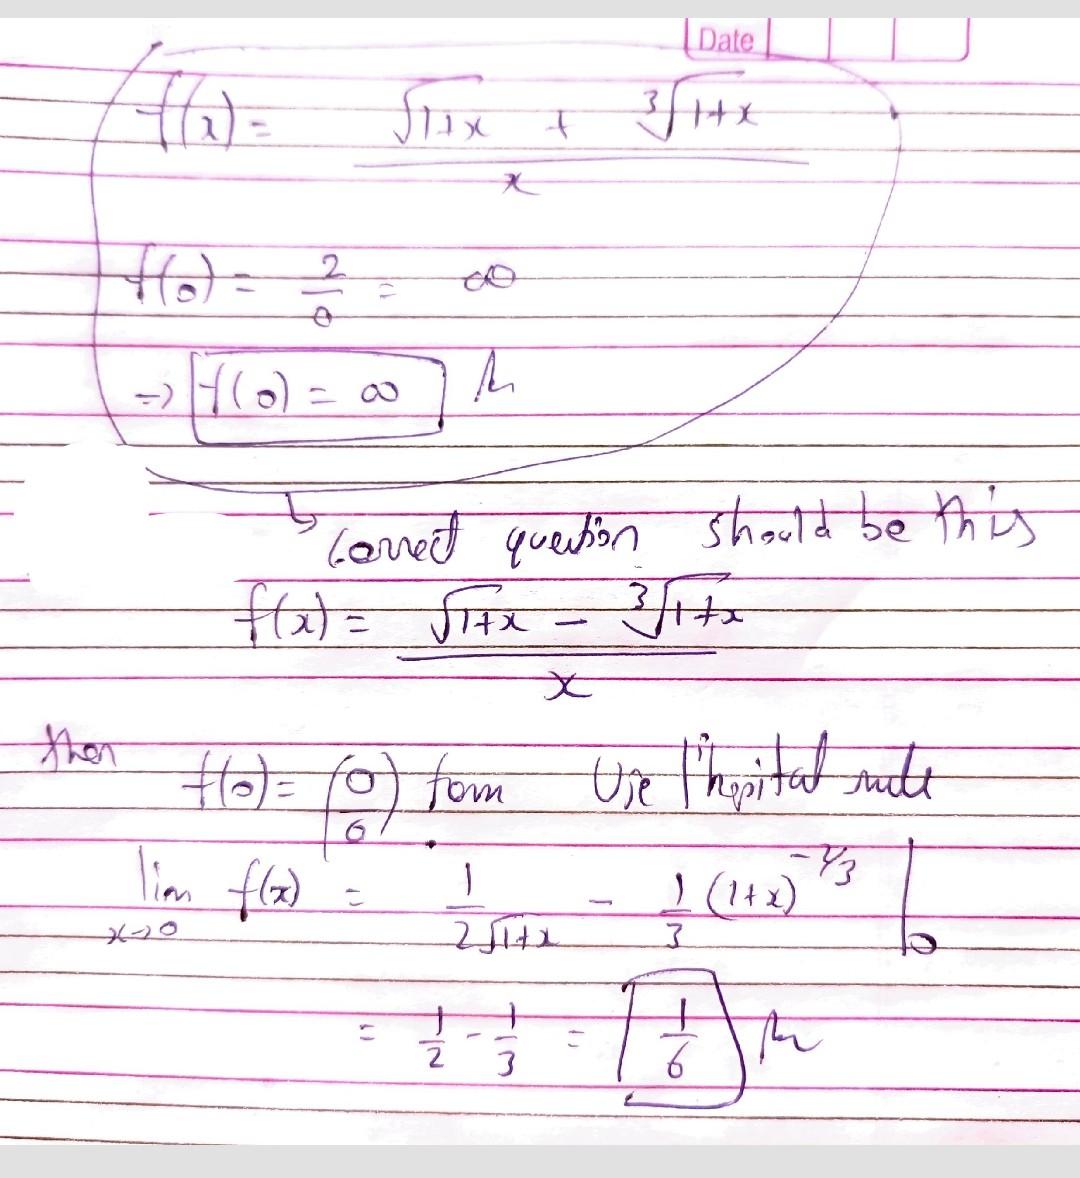 Date
f(x) = √1+x + ∛1+x
x
f(0) = 2/0 = ∞
⇒ f(0) = ∞
↳ correct question should be this
f(x) = √1+x - ∛1+x
x
then f(0) = (0/0) form Use l'hopital rule
lim x→0 f(x) = 1/2√1+x - 1/3 (1+x)^-2/3 |0
= 1/2 - 1/3 = 1/6